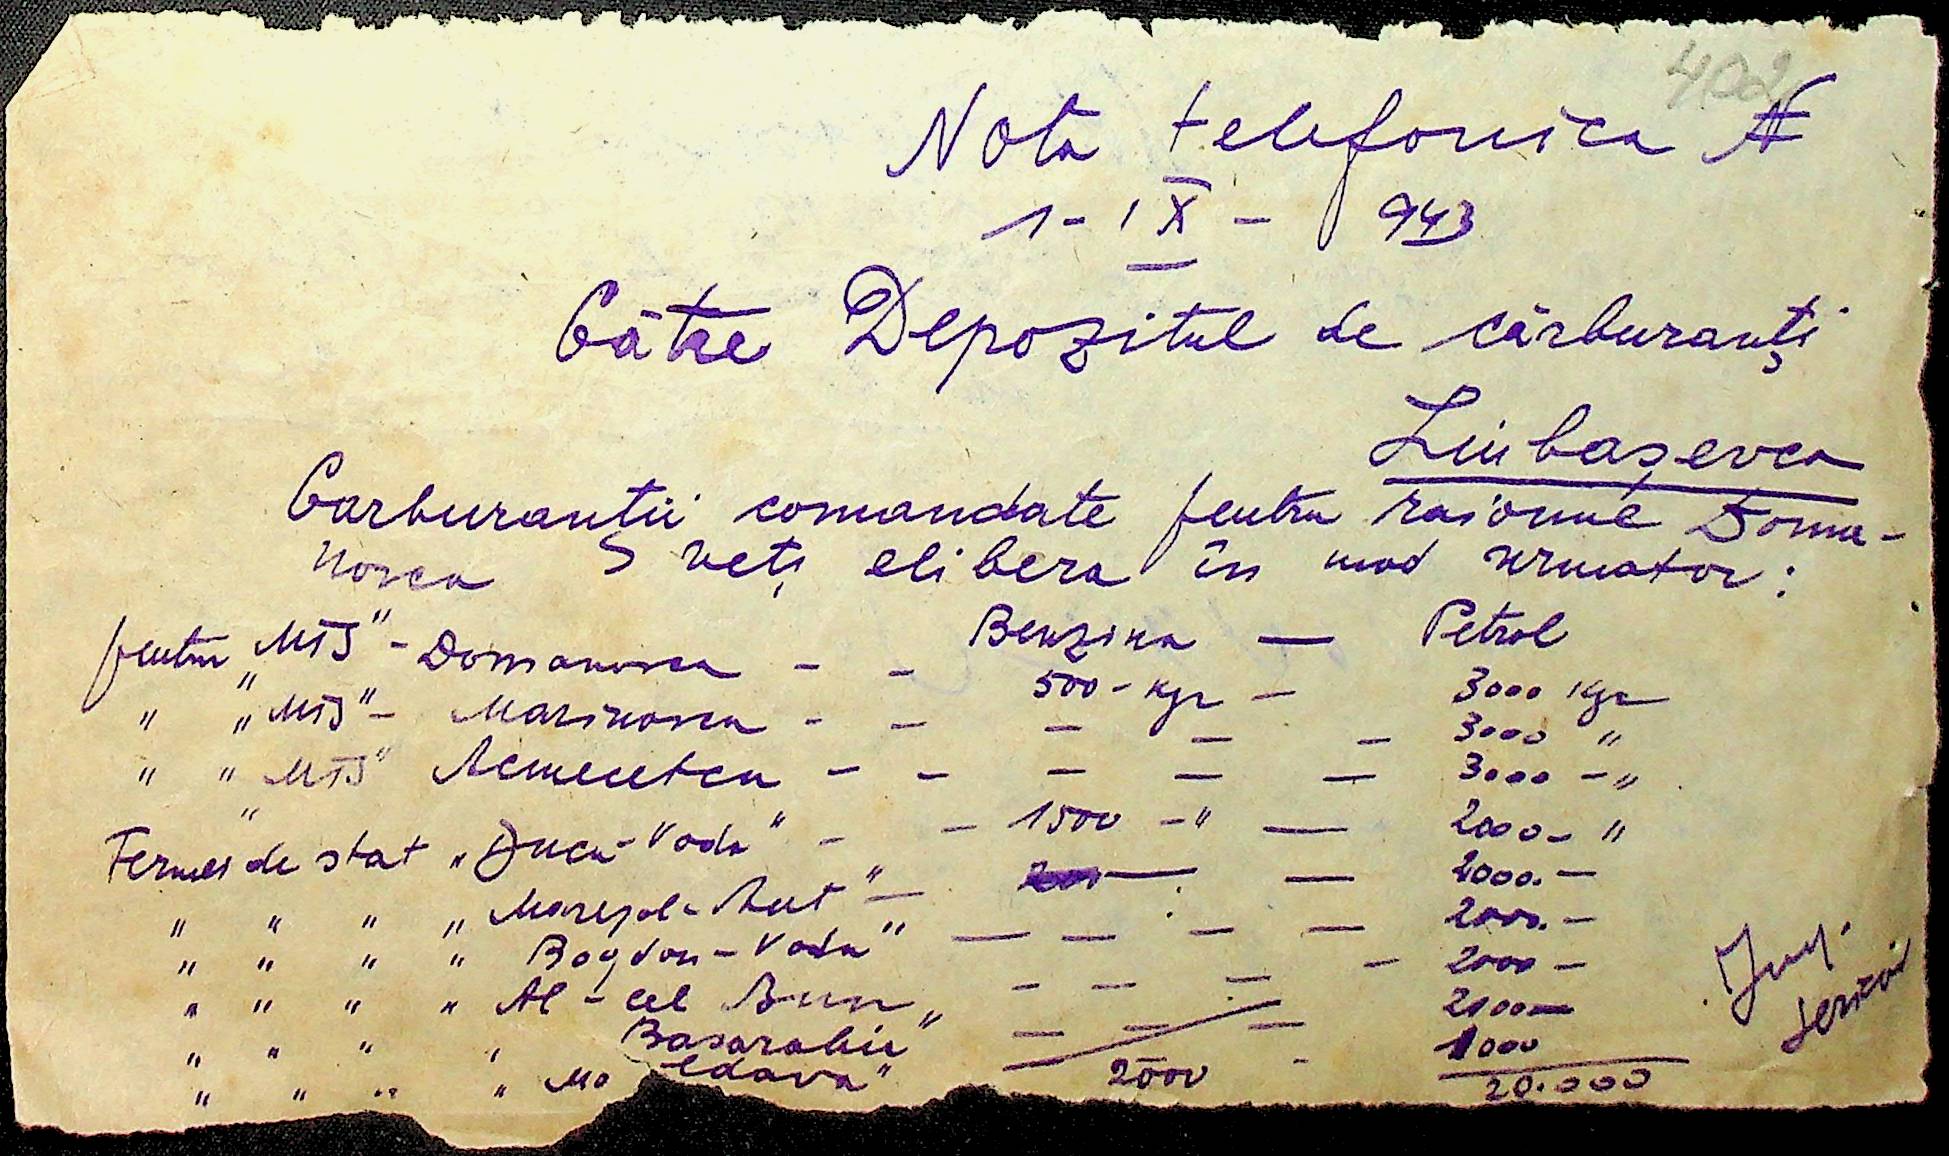 402
Nota telefonica N
1 - IX - 943
Către Depozitul de cărburanți
Liubașevca
Carburanții comandate pentru raionul Doma-
novca veți elibera în mod urmator:
Benzina — Petrol
pentru "MTS" - Domanovca - - 500 - kgr - 3000 kgr
" "MTS" - Marinovca - - - - - 3000 "
" "MTS" Acmecetca - - - - - 3000 - "
Fermei de stat "Duca-Voda" - - 1500 - " — 2000 - "
" " " "Mareșal - Ant" - — — 2000. -
" " " "Bogdan - Voda" — - - - 2000. -
" " " " Al - cel Bun " - - - - 2000 -
" " " " Basarabia" - - - 2000 —
" " " " Moldova" - 1000
2000 20.000